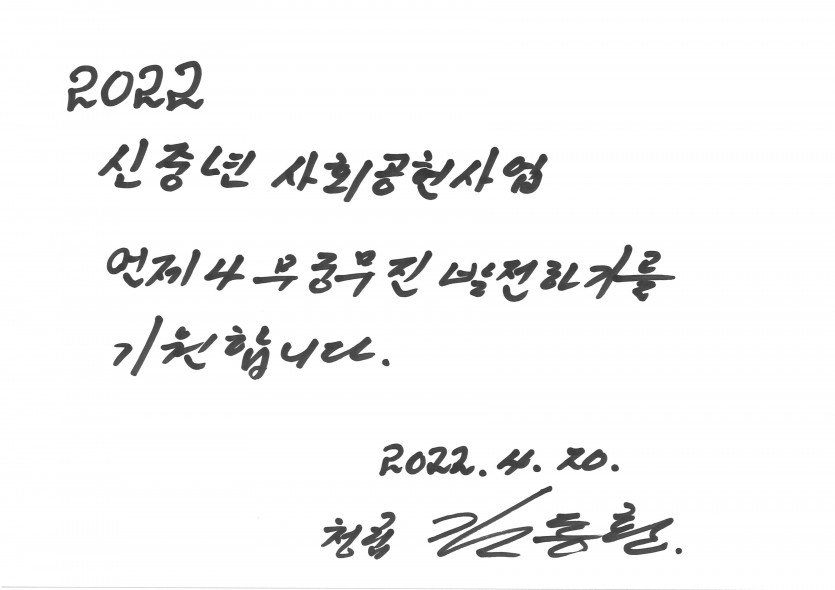 2022
신중년 사회공헌사업
언제나 무궁무진 발전하기를
기원합니다.
2022. 4. 20.
청림 김동철.